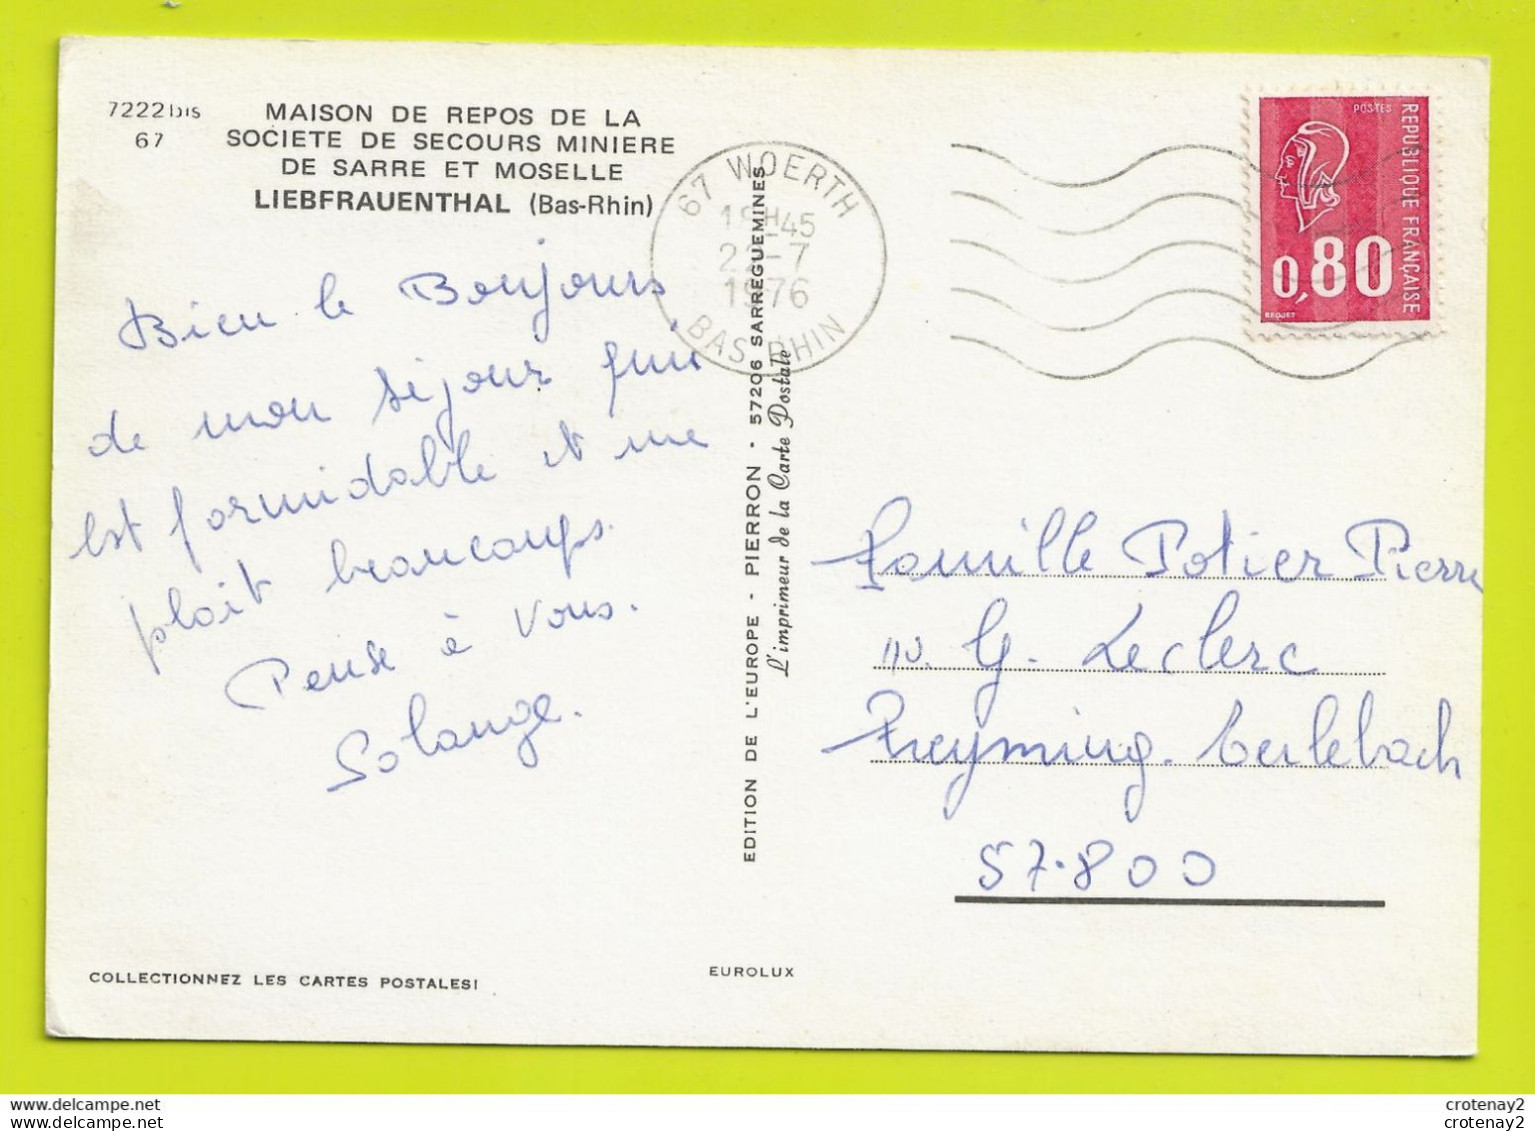 7222bis
67
MAISON DE REPOS DE LA
SOCIETE DE SECOURS MINIERE
DE SARRE ET MOSELLE
LIEBFRAUENTHAL (Bas-Rhin)
67 WOERTH
18H-45
22-7
1976
BAS-RHIN
POSTES
REPUBLIQUE FRANÇAISE
0,80
BEQUET
Bien le Bonjours
de mon séjour qui
est formidable et me
plait beaucoups.
Pense à vous.
Solange.
EDITION DE L'EUROPE - PIERRON - 57206 SARREGUEMINES
L'imprimeur de la Carte Postale
Famille Potier Pierre
G. Leclerc
Freyming. Merlebach
57.800
COLLECTIONNEZ LES CARTES POSTALES!
EUROLUX
www.delcampe.net
www.delcampe.net
crotenay2
crotenay2